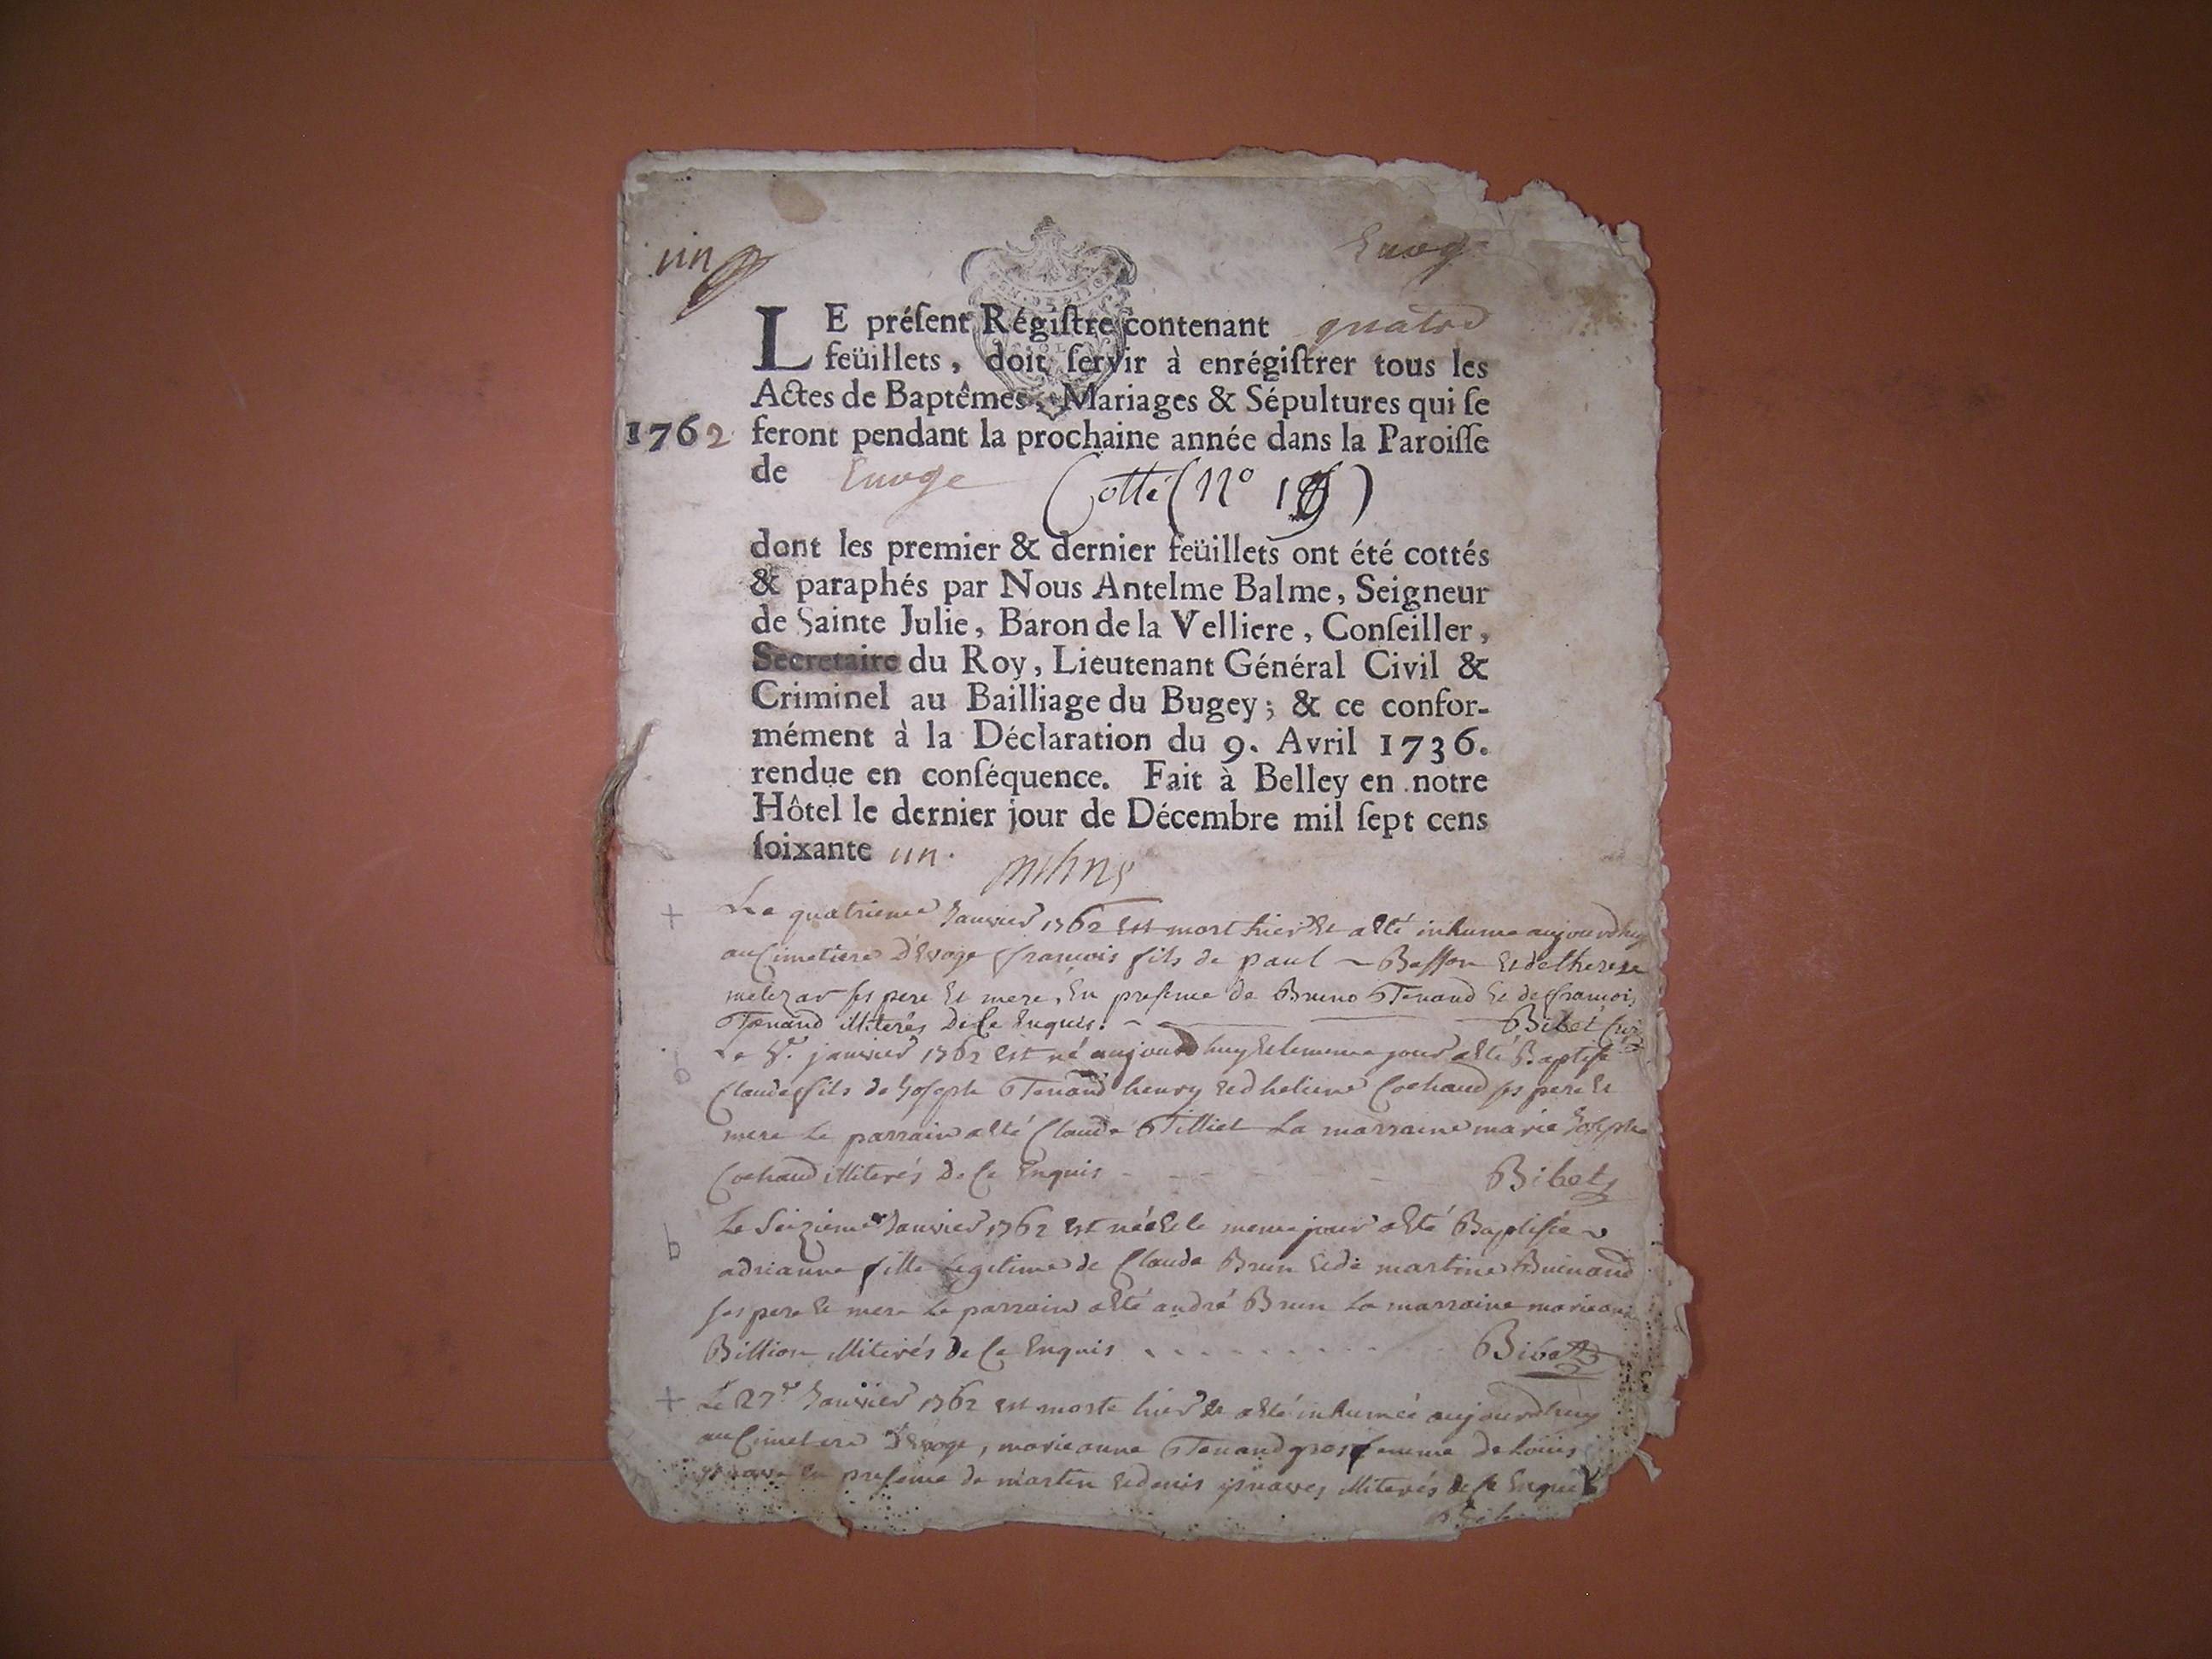 un
Evoge
LE préſent Régiſtre contenant quatre
feüillets, doit ſervir à enrégiſtrer tous les
Actes de Baptêmes, Mariages & Sépultures qui ſe
1762 feront pendant la prochaine année dans la Paroiſſe
de Evoge Cotté (N°
dont les premier & dernier feüillets ont été cottés
& paraphés par Nous Antelme Balme, Seigneur
de Sainte Julie, Baron de la Velliere, Conſeiller,
Secretaire du Roy, Lieutenant Général Civil &
Criminel au Bailliage du Bugey; & ce confor-
mément à la Déclaration du 9. Avril 1736.
rendue en conſéquence. Fait à Belley en notre
Hôtel le dernier jour de Décembre mil ſept cens
ſoixante un.
+ Le quatrieme Janvier 1762 est mort hier et a été inhumé aujourdhuy
au Cimetiere D'Evoge francois fils de paul Besson et de therese
ses pere et mere, En presence de Bruno Tenand et de francois
Tenand illiterés De Ce Enquis. Bibet Curé
Le janvier 1762 est né aujourdhuy et le meme jour a été Baptisé
Claude fils de Joseph Tenand henry et d'heliene Cochaud ses pere et
mere Le parrain a été Claude Tilliet La marraine marie Josephe
Cochaud illiterés De Ce Enquis Bibet
b Le Seizieme Janvier 1762 est née et le meme jour a été Baptisée
adrianne fille Legitime de Claude Brun et de martine Buinand
ses pere et mere Le parrain a été andré Brun La marraine marie
Billion illiterés De Ce Enquis Bibet
+ Le 27e Janvier 1762 est morte hier et a été inhumée aujourdhuy
au Cimetiere D'Evoge, marie anne Tenand gros femme de Louis
En presence de martin et denis illiterés de Ce Enquis